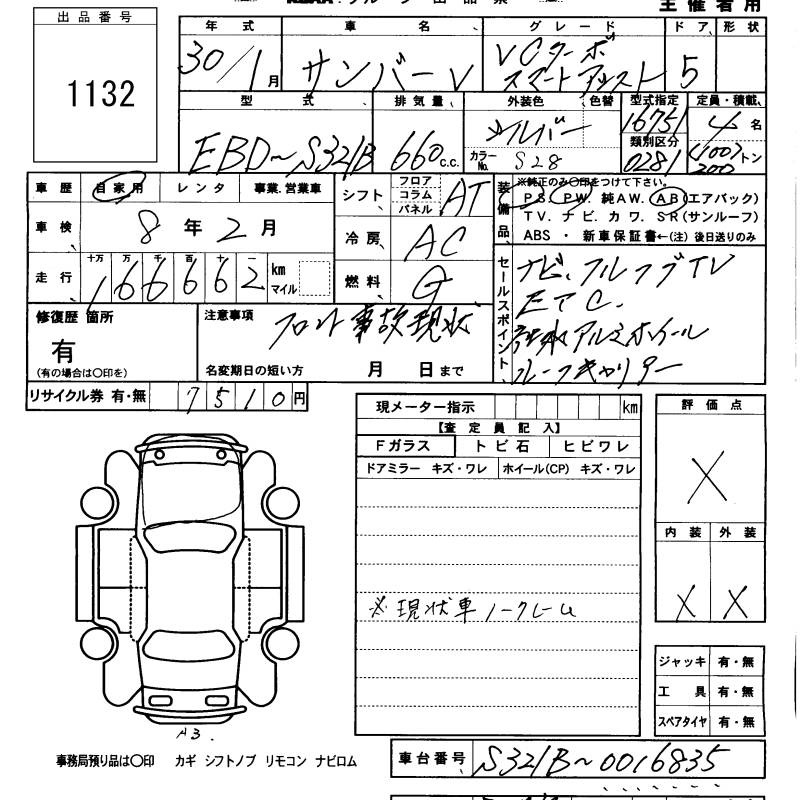 出品番号
1132
主催者用
年式 車名 グレード ドア 形状
30/1月 サンバーV VCターボ スマートアシスト 5
型式 排気量 外装色 色替 型式指定 定員・積載
EBD~S321B 660c.c. シルバー 16751 4名
カラーNo. S28 類別区分 0281 (100) 200 トン
車歴 自家用 レンタ 事業.営業車
車検 8年2月
走行 十万 万 千 百 十 一
166662 km マイル
シフト フロア コラム パネル AT
冷房 AC
燃料 G
装備品 ※純正のみ〇印をつけて下さい。
PS. PW. 純AW. AB(エアバック)
TV. ナビ. カワ. SR(サンルーフ)
ABS ・ 新車保証書←(注) 後日送りのみ
セールスポイント ナビ、フルセグTV
ETC.
社外アルミホイール
ルーフキャリアー
修復歴 箇所
有
(有の場合は〇印を)
注意事項 フロント事故現状
名変期日の短い方 月 日まで
リサイクル券 有・無 7510円
現メーター指示 km
【査定員記入】
Fガラス トビ石 ヒビワレ
ドアミラー キズ・ワレ ホイール(CP) キズ・ワレ
※現状車ノークレーム
評価点
X
内装 外装
X X
ジャッキ 有・無
工具 有・無
スペアタイヤ 有・無
A3.
事務局預り品は〇印 カギ シフトノブ リモコン ナビロム
車台番号 S321B~0016835